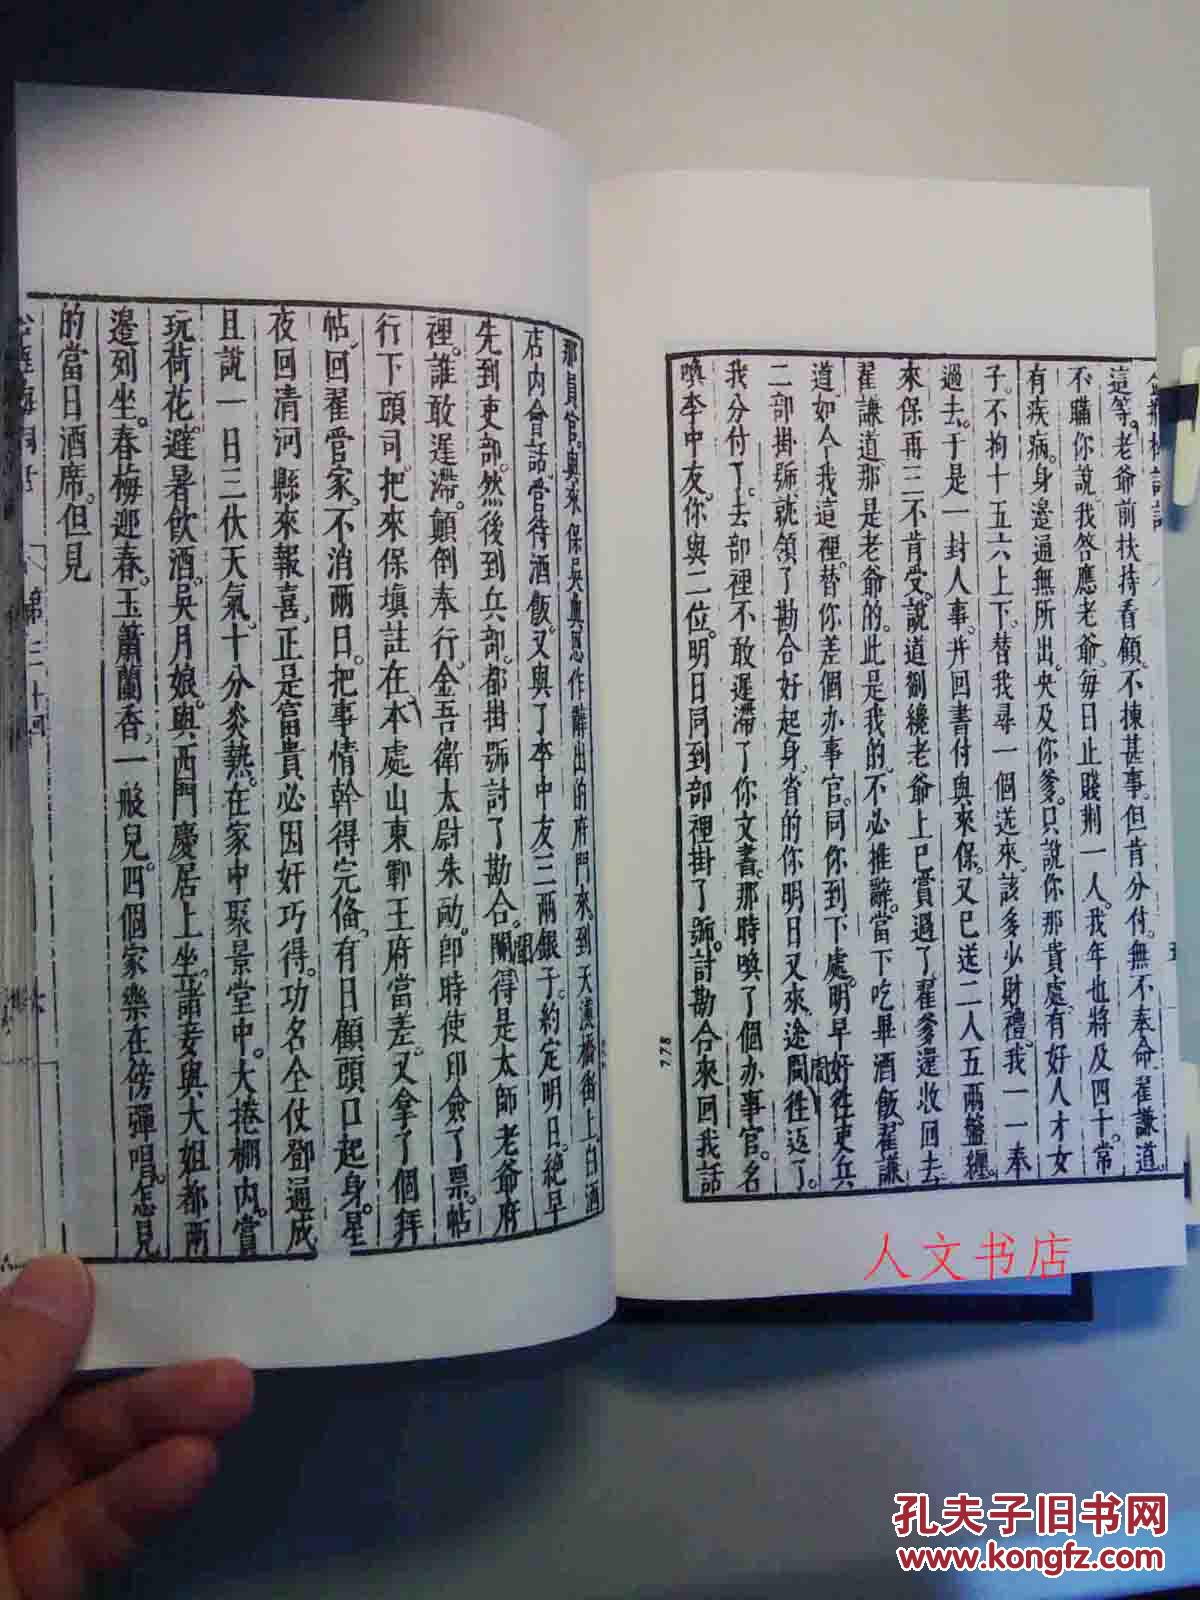 這等。老爺前扶持看顧。不揀甚事。但肯分付。無不奉命。翟謙道。
不瞞你說。我答應老爺。每日止賤荆一人。我年也將及四十。常
有疾病。身邊通無所出。央及你爹。只說你那貴處。有好人才女
子。不拘十五六上下。替我尋一個送來。該多少財禮。我一一奉
過去。于是一封人事。并回書付與來保。又已送二人五兩盤纏。
來保再三不肯受。說道剛纔老爺上已賞過了。翟爹還收回去。
翟謙道那是老爺的。此是我的。不必推辭。當下吃畢酒飯。翟謙
道如今我這裡。替你差個办事官。同你到下處。明早好徃吏兵
二部掛號。就領了勘合好起身。省的你明日又來。途間徃返了。
我分付了。去部裡不敢遲滯了你文書。那時喚了個办事官。名
喚李中友。你與二位。明日同到部裡掛了號。討勘合來回我話
778
那員官。與來保吳典恩作辭出的府門來。到天漢橋街上。白酒
店内會話。管待酒飯。又與了李中友三兩銀子。約定明日。絶早
先到吏部。然後到兵部。都掛號討了勘合。聞得是太師老爺府
裡。誰敢遲滯。顛倒奉行。金吾衛太尉朱勔。即時使印僉了票帖。
行下頭司。把來保填註在本處山東鄆王府當差。又拿了個拜
帖。回翟管家。不消兩日。把事情幹得完俻。有日顧頭口起身。星
夜回清河縣來報喜。正是富貴必因奸巧得。功名全仗鄧通成
且說一日三伏天氣。十分炎熱。在家中聚景堂中。大捲棚内。賞
玩荷花。避暑飲酒。吳月娘。與西門慶居上坐。諸妾與大姐都兩
邊列坐。春梅迎春。玉簫蘭香。一般兒四個家樂在傍彈唱。怎見
的當日酒席。但見
第三十回
人文书店
孔夫子旧书网
www.kongfz.com